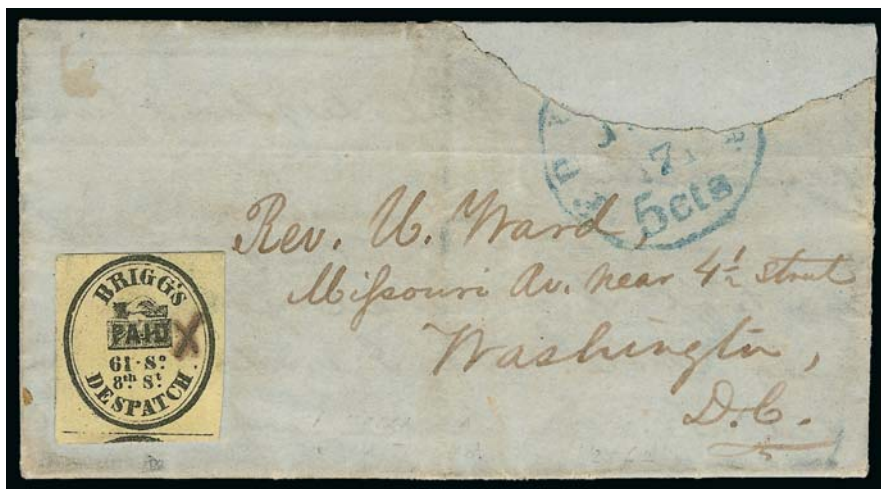 7
5cts
Rev. U. Ward,
Missouri Av. near 4½ street
Washington,
D.C.
BRIGG'S
PAID X
61·So
8th St
DESPATCH